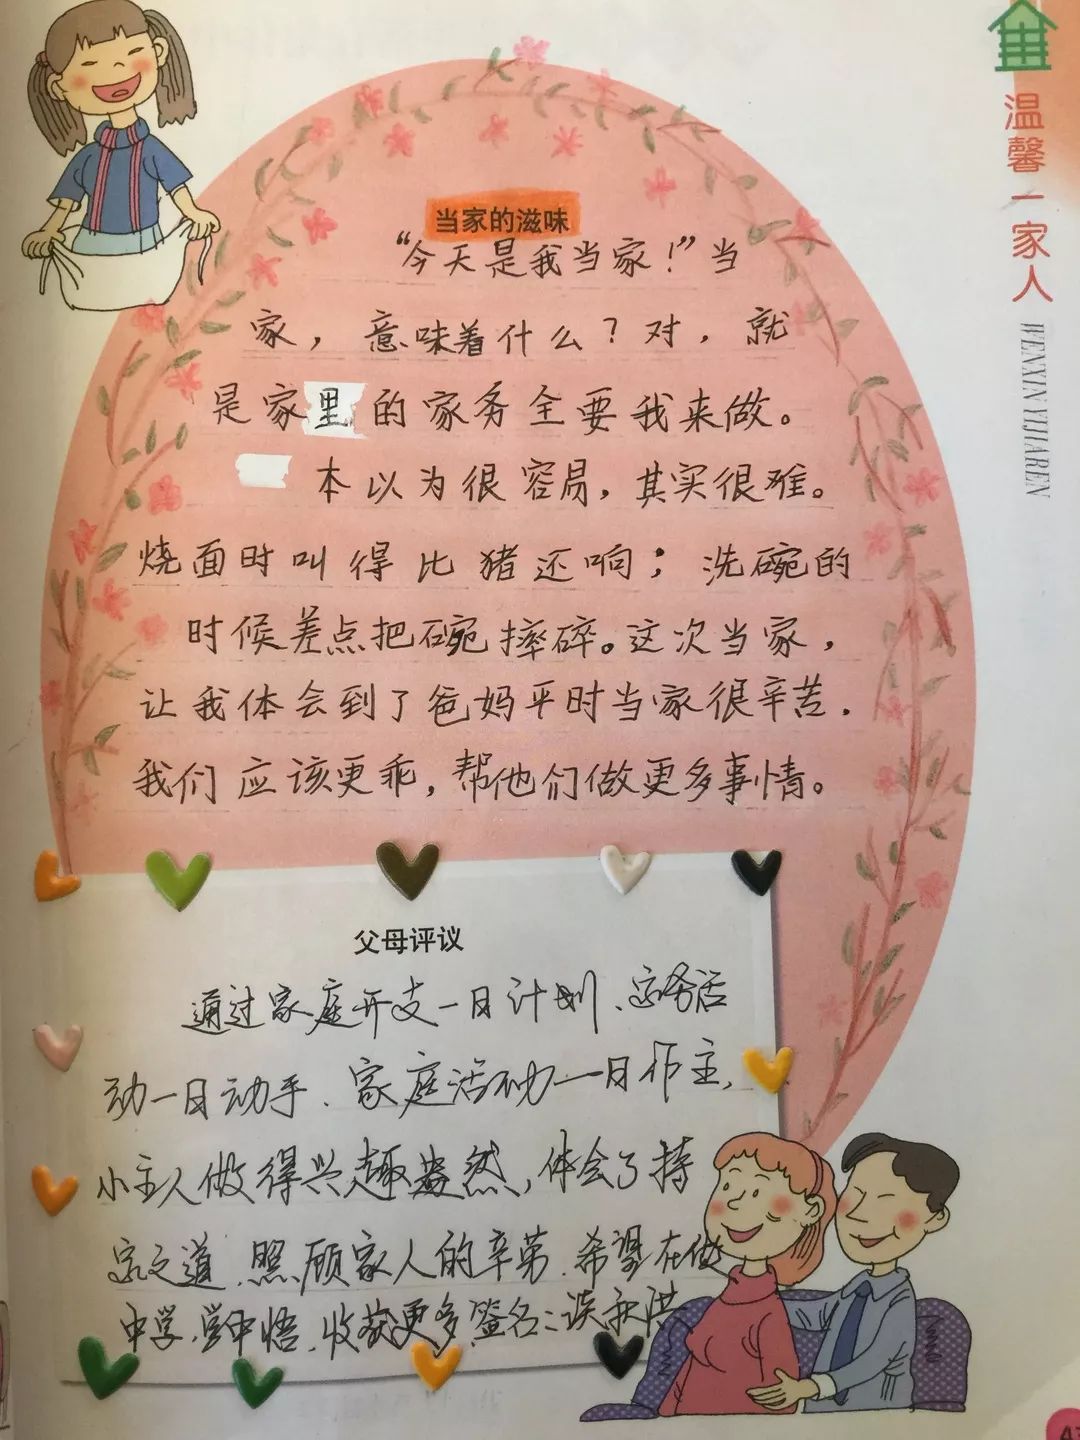 温馨一家人
WENXIN YIJIAREN
当家的滋味
“今天是我当家！”当
家，意味着什么？对，就
是家里的家务全要我来做。
本以为很容易，其实很难。
烧面时叫得比猪还响；洗碗的
时候差点把碗摔碎。这次当家，
让我体会到了爸妈平时当家很辛苦.
我们应该更乖，帮他们做更多事情。
父母评议
通过家庭开支一日计划、家务活
动一日动手、家庭活动一日作主，
小主人做得兴趣盎然，体会了持
家之道、照顾家人的辛劳.希望在做
中学、学中悟、收获更多签名：